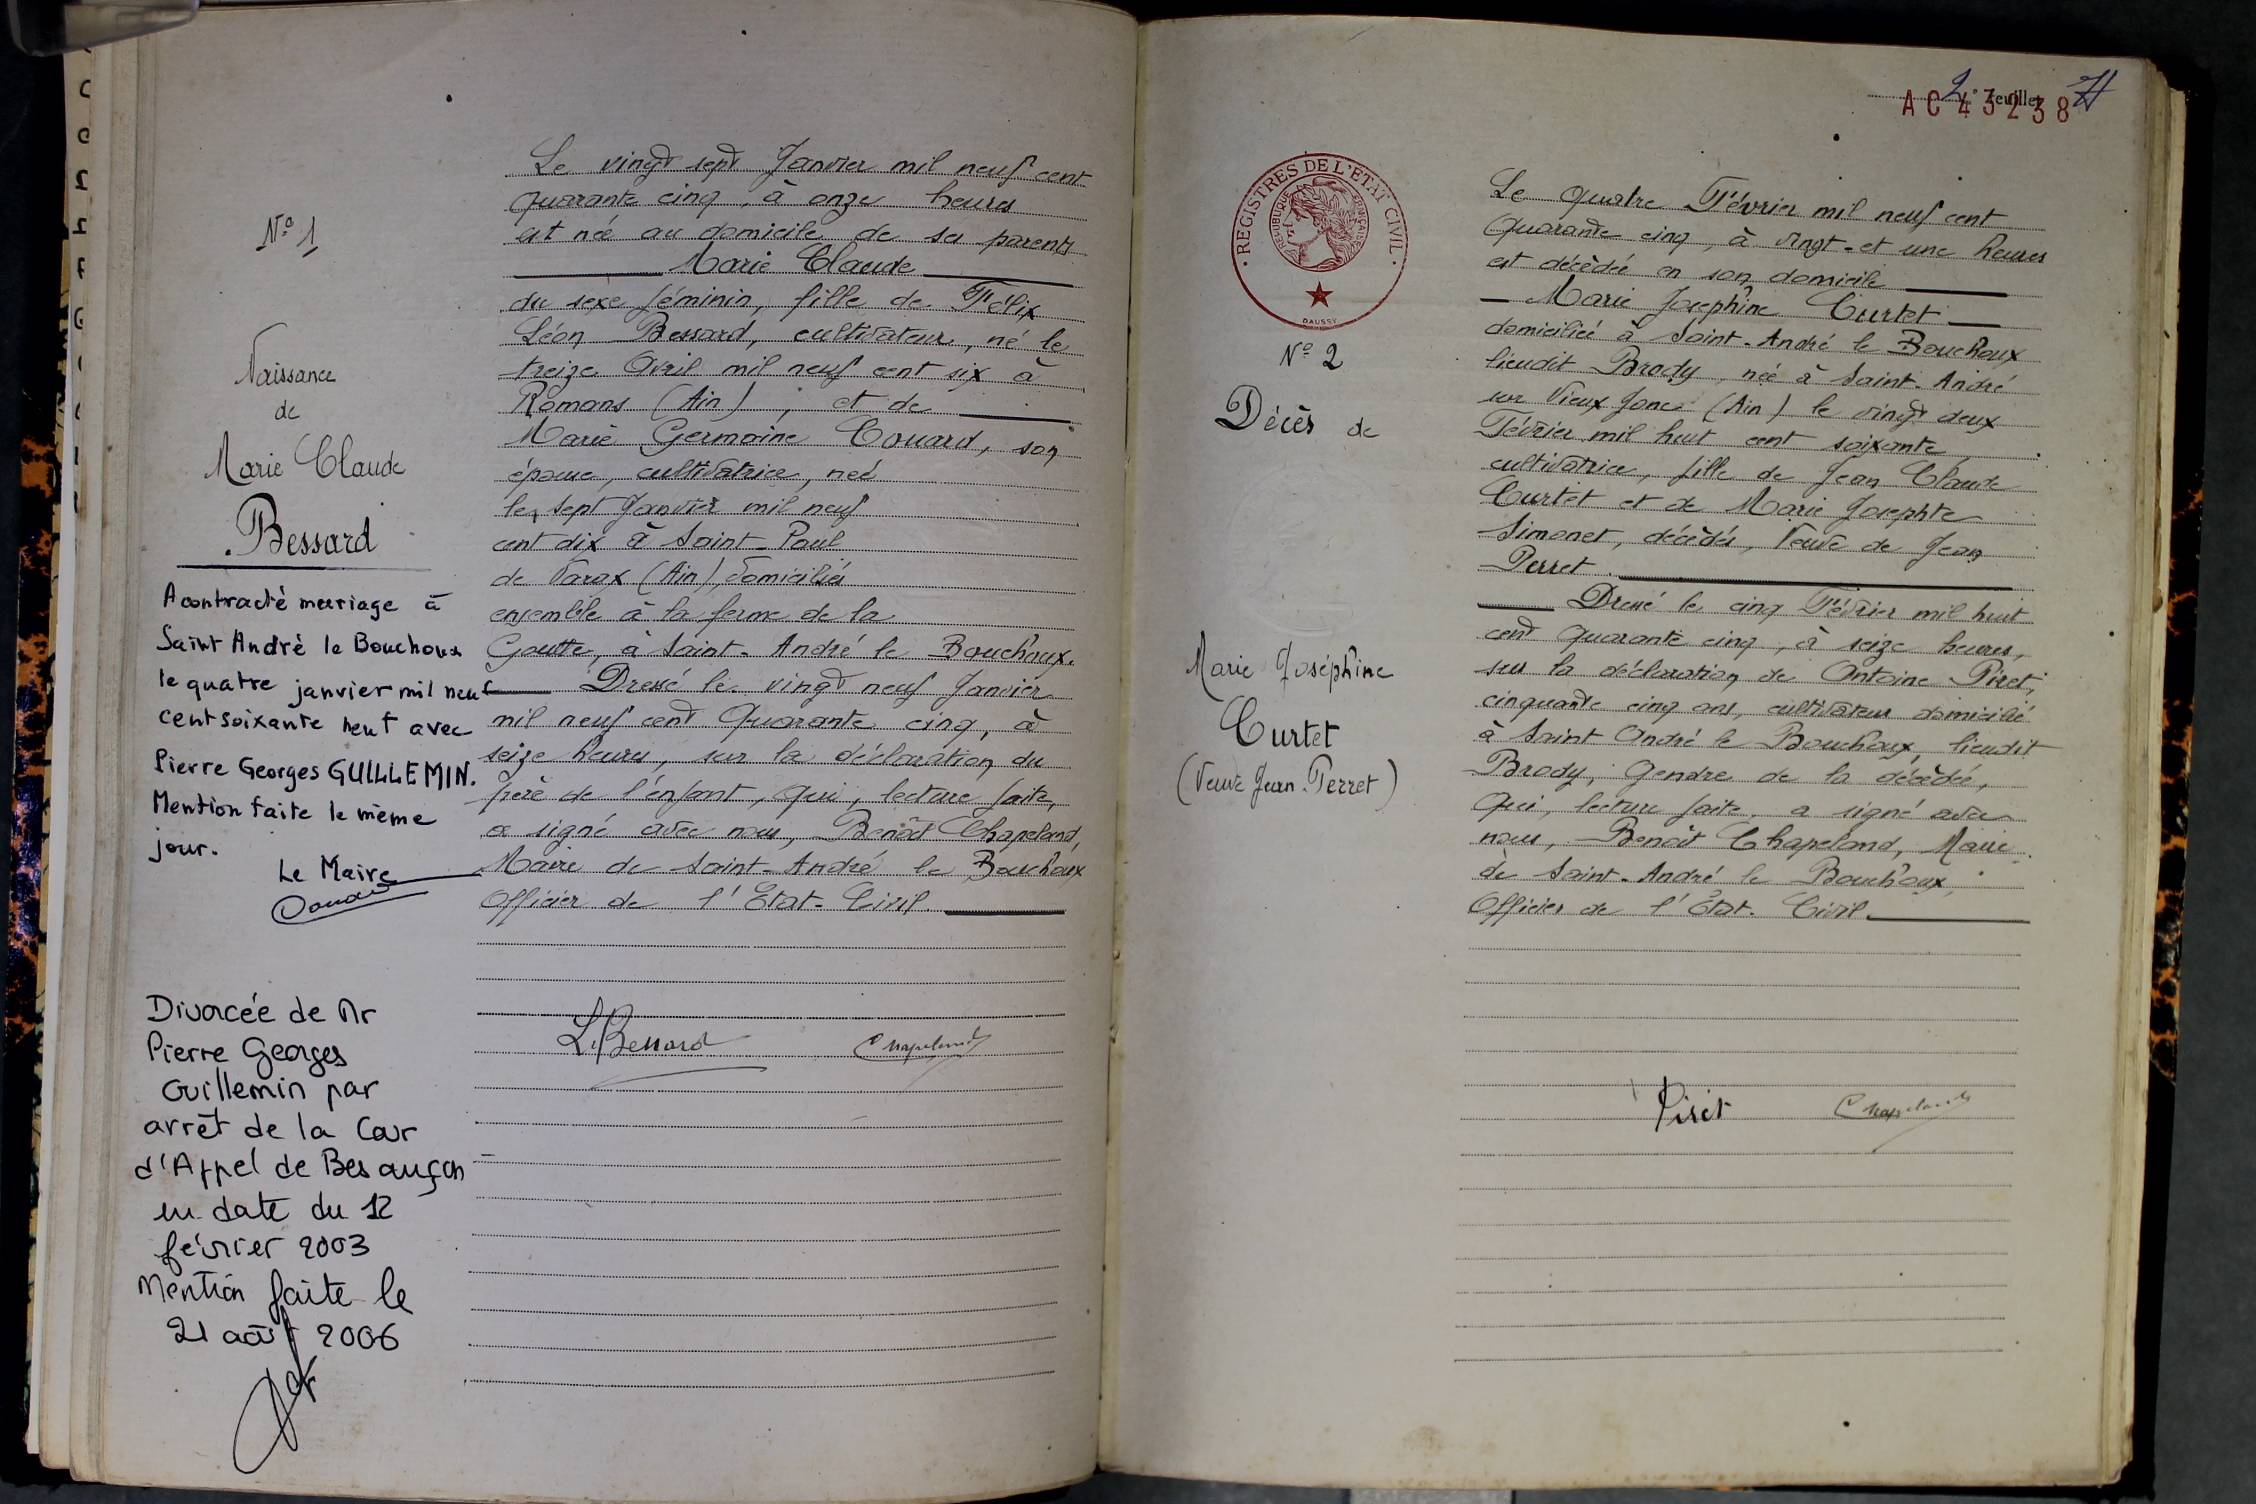 Nº 1
Naissance
de
Marie Claude
Bessard
A contracté mariage à
Saint André le Bouchoux
le quatre janvier mil neuf
cent soixante neuf avec
Pierre Georges GUILLEMIN.
Mention faite le même
jour.
Le Maire
Divorcée de Mr
Pierre Georges
Guillemin par
arrêt de la Cour
d'Appel de Besançon
en date du 12
février 2003
Mention faite le
21 août 2006
Le vingt sept Janvier mil neuf cent
quarante cinq, à onze heures
est née au domicile de ses parents
Marie Claude
du sexe féminin, fille de Félix
Léon Bessard, cultivateur, né le
treize Avril mil neuf cent six à
Romans (Ain), et de
Marie Germaine Couard, son
épouse, cultivatrice, née
le sept Janvier mil neuf
cent dix à Saint-Paul
de Varax (Ain), domiciliés
ensemble à la ferme de la
Goutte, à Saint-André le Bouchoux.
Dressé le vingt neuf Janvier
mil neuf cent quarante cinq, à
seize heures, sur la déclaration du
père de l'enfant, qui, lecture faite,
a signé avec nous, Benoît Chapeland,
Maire de Saint-André le Bouchoux
Officier de l'Etat-Civil.
L. Bessard
Chapeland
2e feuillet
AC 43238
REGISTRES DE L'ETAT CIVIL
REPUBLIQUE FRANÇAISE
DAUSSY
Nº 2
Décès de
Marie Joséphine
Curtet
(Veuve Jean Perret)
Le quatre Février mil neuf cent
quarante cinq, à vingt-et une heures
est décédée en son domicile
Marie Josephine Curtet
domiciliée à Saint-André le Bouchoux
lieudit Brody, née à Saint-André
sur Vieux Jonc (Ain) le vingt deux
Février mil huit cent soixante,
cultivatrice, fille de Jean Claude
Curtet et de Marie Josephte
Simonet, décédés, Veuve de Jean
Perret.
Dressé le cinq Février mil huit
cent quarante cinq, à seize heures,
sur la déclaration de Antoine Piret,
cinquante cinq ans, cultivateur domicilié
à Saint André le Bouchoux, lieudit
Brody, gendre de la décédée,
qui, lecture faite, a signé avec
nous, Benoît Chapeland, Maire
de Saint-André le Bouchoux,
Officier de l'Etat-Civil.
Piret
Chapeland